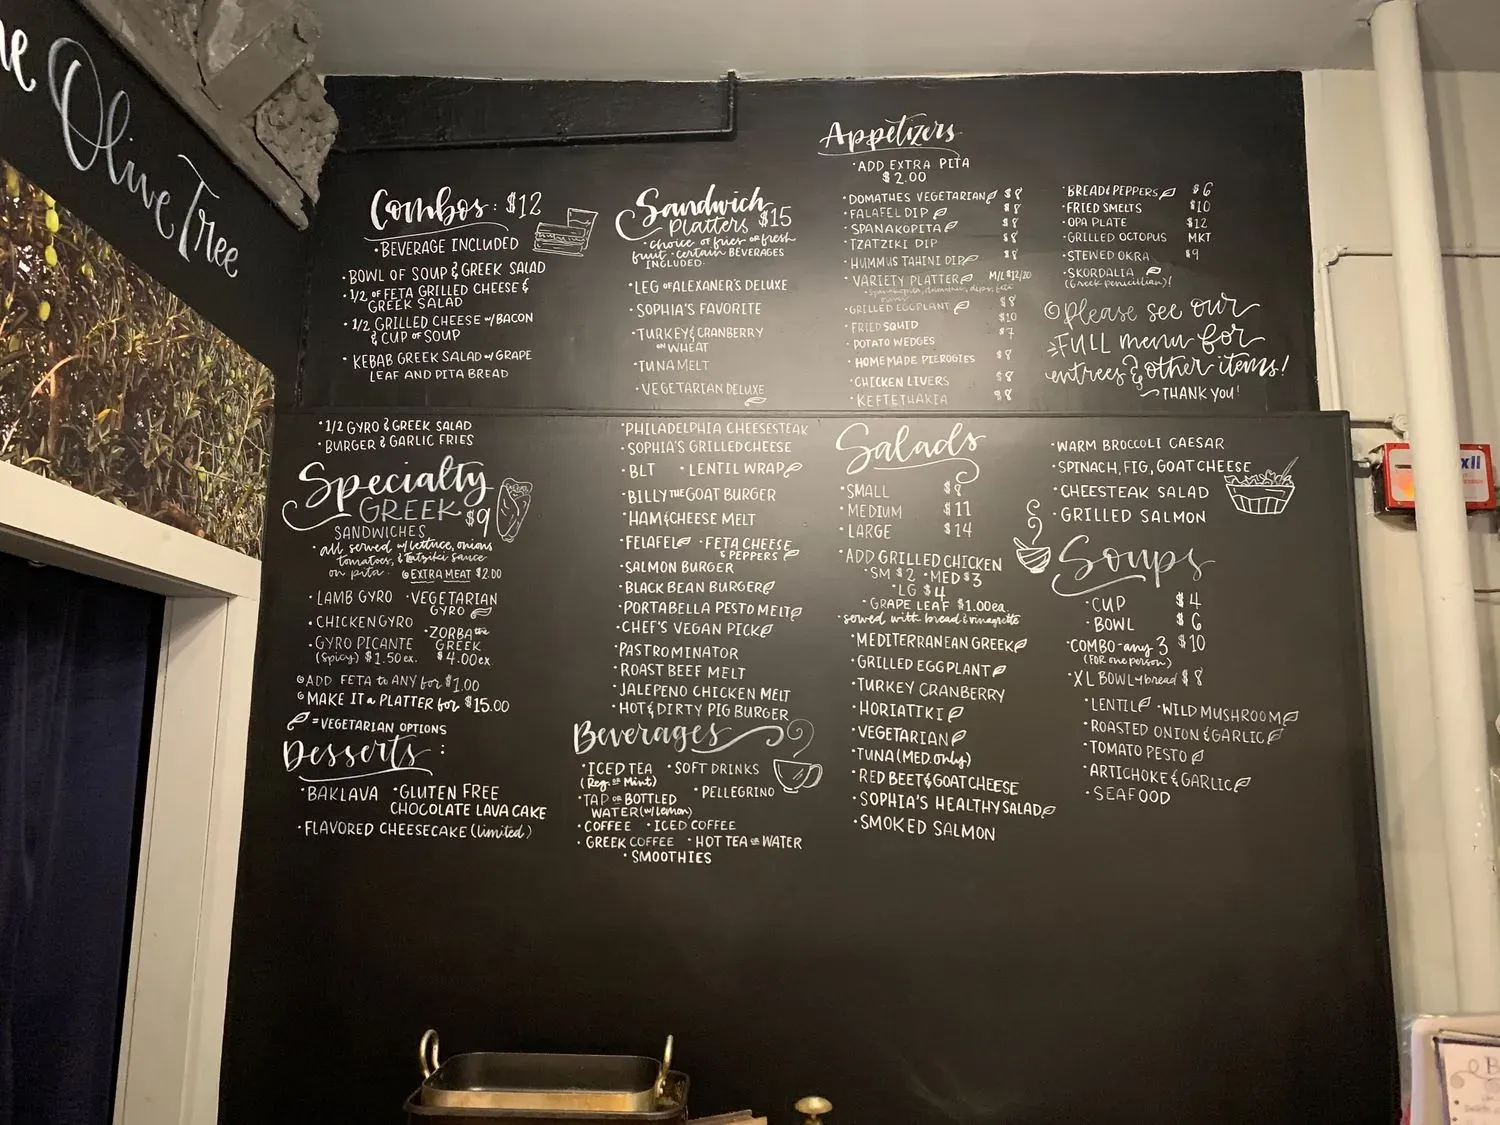 The Olive Tree
Combos: $12
• BEVERAGE INCLUDED
• BOWL OF SOUP & GREEK SALAD
• 1/2 OF FETA GRILLED CHEESE &
GREEK SALAD
• 1/2 GRILLED CHEESE w/ BACON
& CUP OF SOUP
• KEBAB GREEK SALAD w/ GRAPE
LEAF AND PITA BREAD
• 1/2 GYRO & GREEK SALAD
• BURGER & GARLIC FRIES
Specialty
GREEK $9
SANDWICHES
• all served w/ lettuce, onions
tomatoes, & tzatziki sauce
on pita. EXTRA MEAT $2.00
• LAMB GYRO • VEGETARIAN
GYRO
• CHICKEN GYRO
• ZORBA the
GREEK
$4.00ex.
• GYRO PICANTE
(Spicy) $1.50ex.
ADD FETA to ANY for $1.00
MAKE IT a PLATTER for $15.00
= VEGETARIAN OPTIONS
Desserts:
• BAKLAVA • GLUTEN FREE
CHOCOLATE LAVA CAKE
• FLAVORED CHEESECAKE (limited)
Sandwich
Platters $15
• choice of fries or fresh
fruit • certain BEVERAGES
INCLUDED.
• LEG OF ALEXANER'S DELUXE
• SOPHIA'S FAVORITE
• TURKEY & CRANBERRY
ON WHEAT
• TUNA MELT
• VEGETARIAN DELUXE
• PHILADELPHIA CHEESESTEAK
• SOPHIA'S GRILLED CHEESE
• BLT • LENTIL WRAP
• BILLY THE GOAT BURGER
• HAM & CHEESE MELT
• FELAFEL • FETA CHEESE
& PEPPERS
• SALMON BURGER
• BLACK BEAN BURGER
• PORTABELLA PESTO MELT
• CHEF'S VEGAN PICK
• PASTROMINATOR
• ROAST BEEF MELT
• JALEPENO CHICKEN MELT
• HOT & DIRTY PIG BURGER
Beverages
• ICED TEA • SOFT DRINKS
(Reg. or Mint)
• PELLEGRINO
• TAP OR BOTTLED
WATER (w/ lemon)
• COFFEE • ICED COFFEE
• GREEK COFFEE • HOT TEA OR WATER
• SMOOTHIES
Appetizers
• ADD EXTRA PITA
$2.00
• DOMATHES VEGETARIAN $8
• FALAFEL DIP $8
• SPANAKOPITA $8
• TZATZIKI DIP $8
• HUMMUS TAHINI DIP $8
• VARIETY PLATTER M/L $12/20
• GRILLED EGGPLANT $8
• FRIED SQUID $10
• POTATO WEDGES $7
• HOMEMADE PIEROGIES $8
• CHICKEN LIVERS $8
• KEFTETHAKIA $8
• BREAD & PEPPERS $6
• FRIED SMELTS $10
• OPA PLATE $12
• GRILLED OCTOPUS MKT
• STEWED OKRA $9
• SKORDALIA
Please see our
FULL menu for
entrees & other items!
THANK YOU!
Salads
• SMALL $8
• MEDIUM $11
• LARGE $14
• ADD GRILLED CHICKEN
• SM $2 • MED $3
• LG $4
• GRAPE LEAF $1.00ea
• served with bread & vinagrette
• MEDITERRANEAN GREEK
• GRILLED EGGPLANT
• TURKEY CRANBERRY
• HORIATIKI
• VEGETARIAN
• TUNA (MED. only)
• RED BEET & GOAT CHEESE
• SOPHIA'S HEALTHY SALAD
• SMOKED SALMON
• WARM BROCCOLI CAESAR
• SPINACH, FIG, GOAT CHEESE
• CHEESTEAK SALAD
• GRILLED SALMON
Soups
• CUP $4
• BOWL $6
• COMBO - any 3 $10
(FOR one person)
• XL BOWL w/ bread $8
• LENTIL • WILD MUSHROOM
• ROASTED ONION & GARLIC
• TOMATO PESTO
• ARTICHOKE & GARLIC
• SEAFOOD